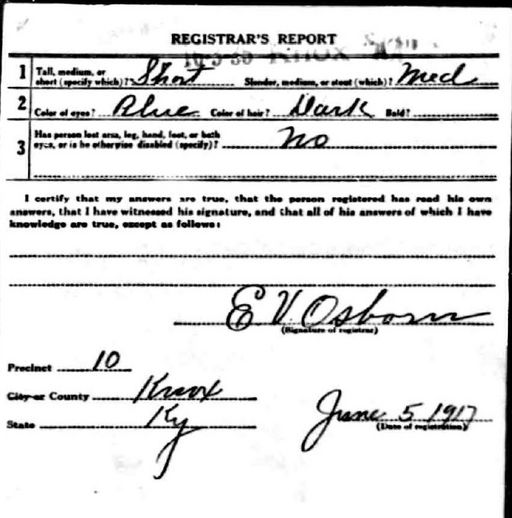 REGISTRAR'S REPORT
KNOX
1 Tall, medium, or short (specify which)? Short Slender, medium, or stout (which)? Med
2 Color of eyes? Blue Color of hair? Dark Bald?
3 Has person lost arm, leg, hand, foot, or both
eyes, or is he otherwise disabled (specify)? no
I certify that my answers are true, that the person registered has read his own
answers, that I have witnessed his signature, and that all of his answers of which I have
knowledge are true, except as follows:
E V Osborn
(Signature of registrar)
Precinct 10
City or County Knox
State Ky
June 5 1917
(Date of registration)